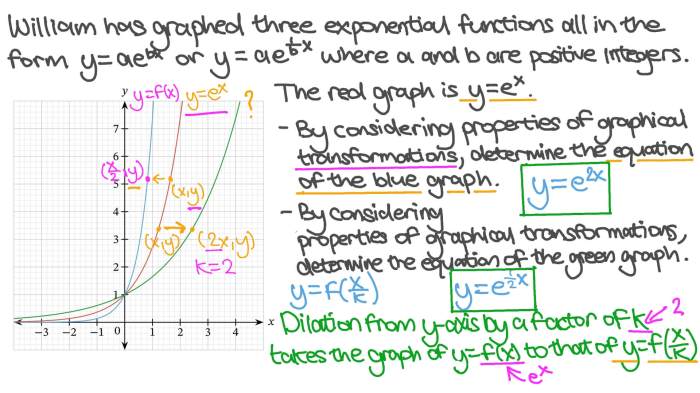 William has graphed three exponential functions all in the
form y=ae^bx or y=ae^(1/b x) where a and b are positive integers.
The real graph is y=e^x.
- By considering properties of graphical
transformations, determine the equation
of the blue graph.
y=e^2x
- By considering
properties of graphical transformations,
determine the equation of the green graph.
y=f(x/k)
y=e^(1/2 x)
Dilation from y-axis by a factor of k 2
takes the graph of y=f(x) to that of y=f(x/k)
e^x
y
y=f(x) y=e^x ?
7
6
(x/2, y)
5
(x,y)
4
3
(x,y) (2x,y)
2
k=2
1
−3 −2 −1 0 1 2 3 4 x